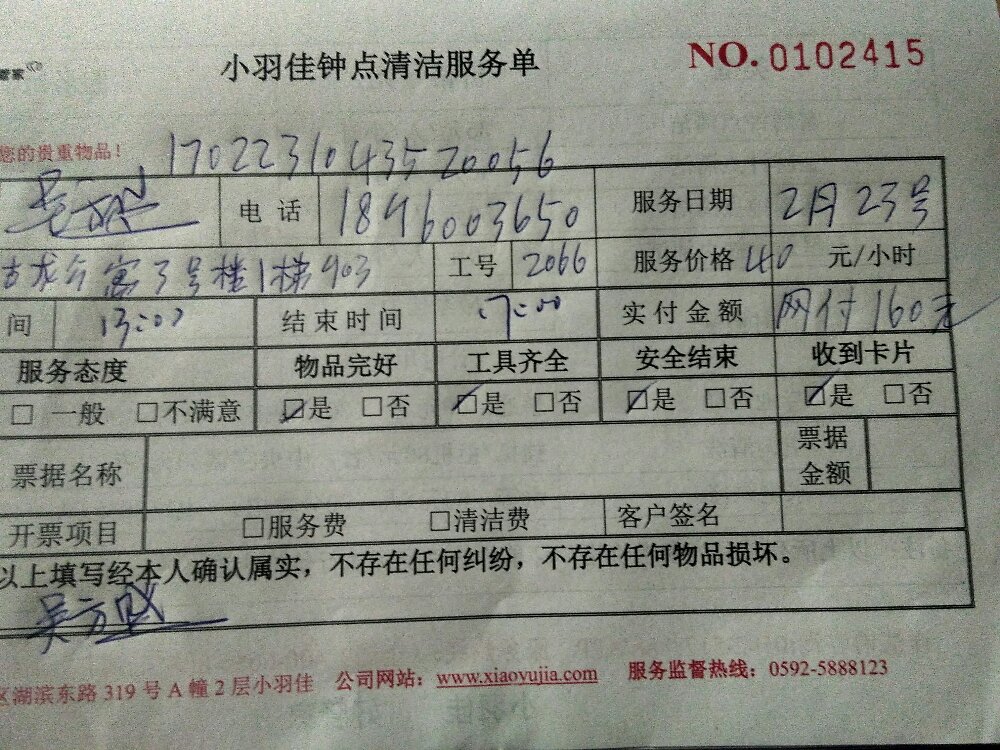 管家
小羽佳钟点清洁服务单 NO.0102415
您的贵重物品! 17022310435520056
电话 18496003650 服务日期 2月23号
3号楼1梯903 工号 2066 服务价格 40 元/小时
间 13:00 结束时间 17:00 实付金额 网付160元
服务态度 物品完好 工具齐全 安全结束 收到卡片
□ 一般 □不满意 ☑是 □否 ☑是 □否 ☑是 □否 ☑是 □否
票据名称 票据金额
开票项目 □服务费 □清洁费 客户签名
以上填写经本人确认属实，不存在任何纠纷，不存在任何物品损坏。
区湖滨东路 319 号 A 幢 2 层小羽佳 公司网站：www.xiaoyujia.com 服务监督热线：0592-5888123